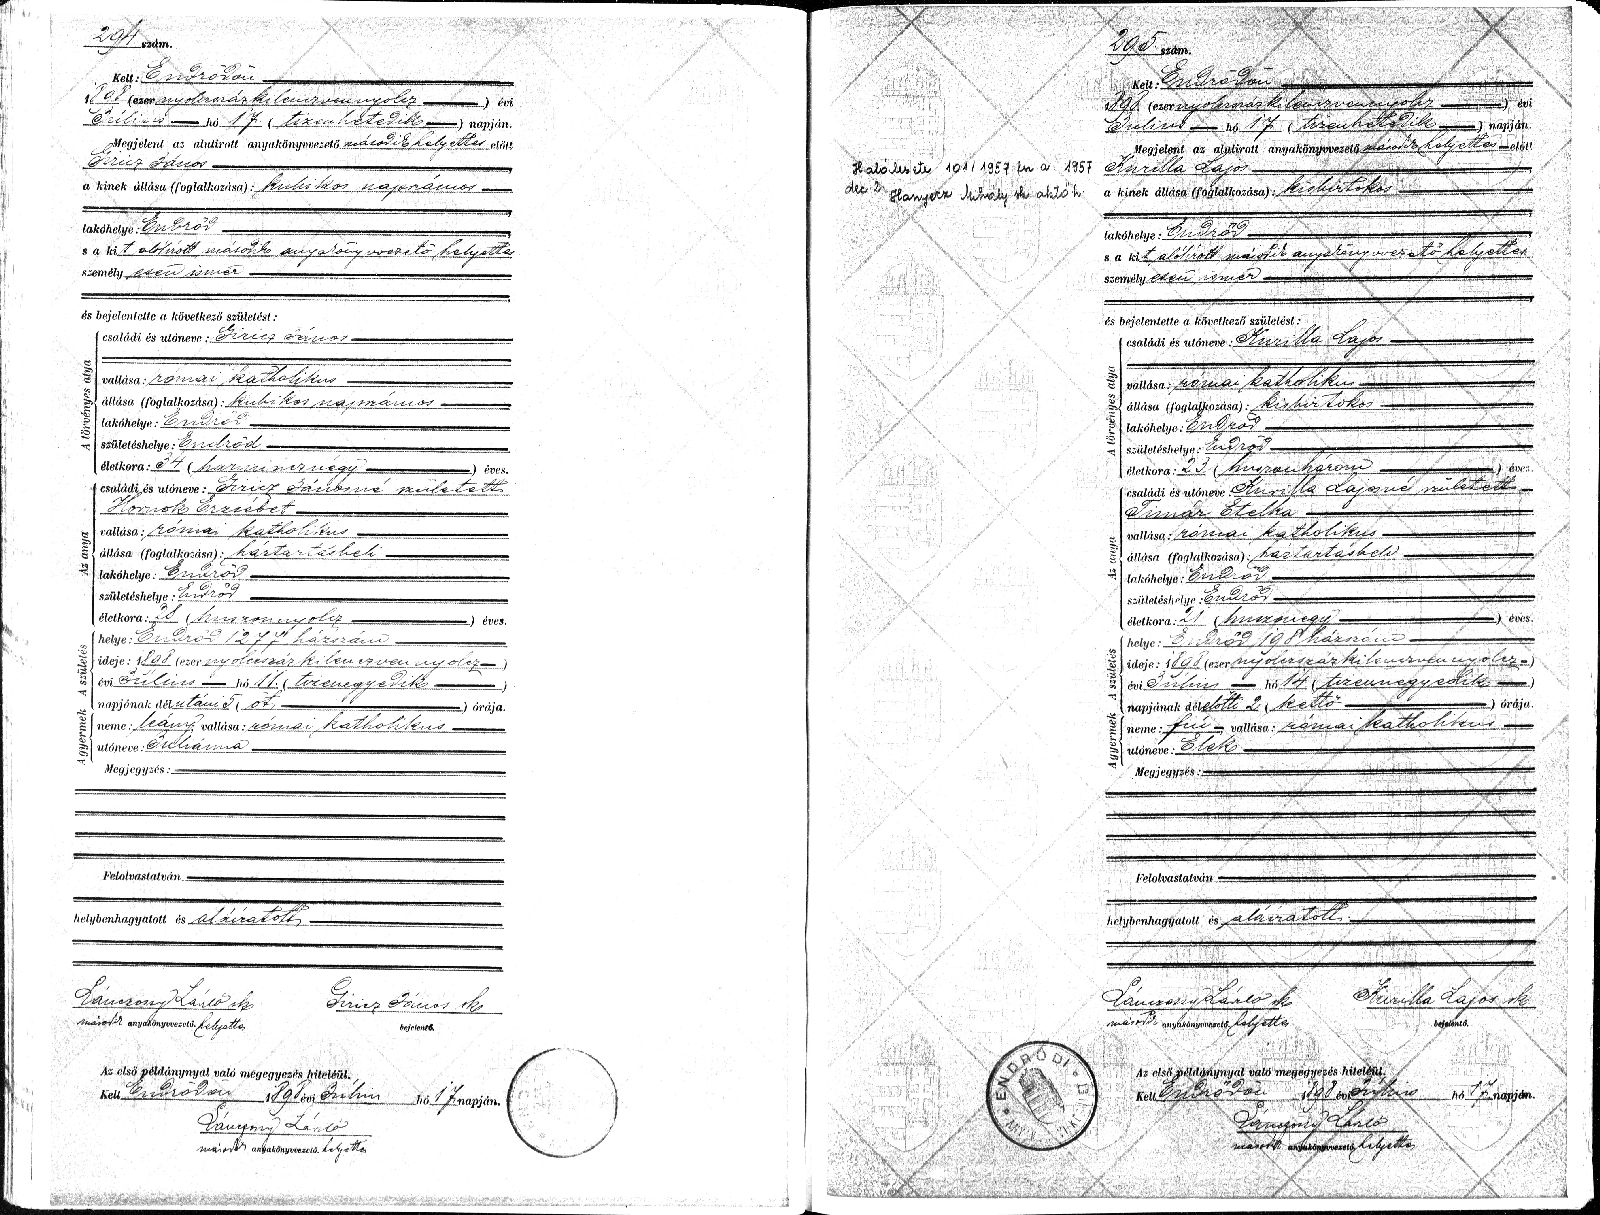 294 szám.
Kelt: Endrődön
1898 (ezernyolczszázkilenczvennyolcz) évi
Július hó 17 (tizenhetedik) napján.
Megjelent az alulirott anyakönyvvezető második helyettes előtt
Giricz János
a kinek állása (foglalkozása): kubikos napszámos
lakóhelye: Endrőd
s a kit alólírott második anyakönyvvezető helyettes
személyesen ismer
és bejelentette a következő születést:
A törvényes atya
családi és utóneve: Giricz János
vallása: római katholikus
állása (foglalkozása): kubikos napszámos
lakóhelye: Endrőd
születéshelye: Endrőd
életkora: 34 (harmincznégy) éves.
Az anya
családi és utóneve: Giricz Jánosné született
Hornok Erzsébet
vallása: római katholikus
állása (foglalkozása): háztartásbeli
lakóhelye: Endrőd
születéshelye: Endrőd
életkora: 28 (huszonnyolcz) éves.
A születés
helye: Endrőd 1277 házszám
ideje: 1898 (ezernyolczszázkilenczvennyolcz)
évi Július hó 11 (tizenegyedik)
napjának délutáni 5 (öt) órája.
A gyermek
neme: leány, vallása: római katholikus
utóneve: Julianna
Megjegyzés:
Felolvastatván
helybenhagyatott és aláiratott
Lánczony László sk
második anyakönyvvezető. helyettes
Giricz János sk
bejelentő.
Az első példánynyal való megegyezés hiteléül.
Kelt Endrődön 1898 évi Július hó 17 napján.
Lánczony László
második anyakönyvvezető. helyettes
295 szám.
Kelt: Endrődön
1898 (ezernyolczszázkilenczvennyolcz) évi
Július hó 17 (tizenhetedik) napján.
Megjelent az alulirott anyakönyvvezető második helyettes előtt
Kurilla Lajos
a kinek állása (foglalkozása): kisbirtokos
lakóhelye: Endrőd
s a kit alólírott második anyakönyvvezető helyettes
személyesen ismer
és bejelentette a következő születést:
A törvényes atya
családi és utóneve: Kurilla Lajos
vallása: római katholikus
állása (foglalkozása): kisbirtokos
lakóhelye: Endrőd
születéshelye: Endrőd
életkora: 23 (huszonhárom) éves.
Az anya
családi és utóneve: Kurilla Lajosné született
Timár Etelka
vallása: római katholikus
állása (foglalkozása): háztartásbeli
lakóhelye: Endrőd
születéshelye: Endrőd
életkora: 21 (huszonegy) éves.
A születés
helye: Endrőd 198 házszám
ideje: 1898 (ezernyolczszázkilenczvennyolcz)
évi Július hó 14 (tizennegyedik)
napjának délelőtti 2 (kettő) órája.
A gyermek
neme: fiú, vallása: római katholikus
utóneve: Elek
Megjegyzés:
Felolvastatván
helybenhagyatott és aláiratott
Lánczony László sk
második anyakönyvvezető. helyettes
Kurilla Lajos sk
bejelentő.
Az első példánynyal való megegyezés hiteléül.
Kelt Endrődön 1898 évi Július hó 17 napján.
Lánczony László
második anyakönyvvezető. helyettes
Halálesete 101/1957 1957
dec 2. Mihály
ENDRŐDI